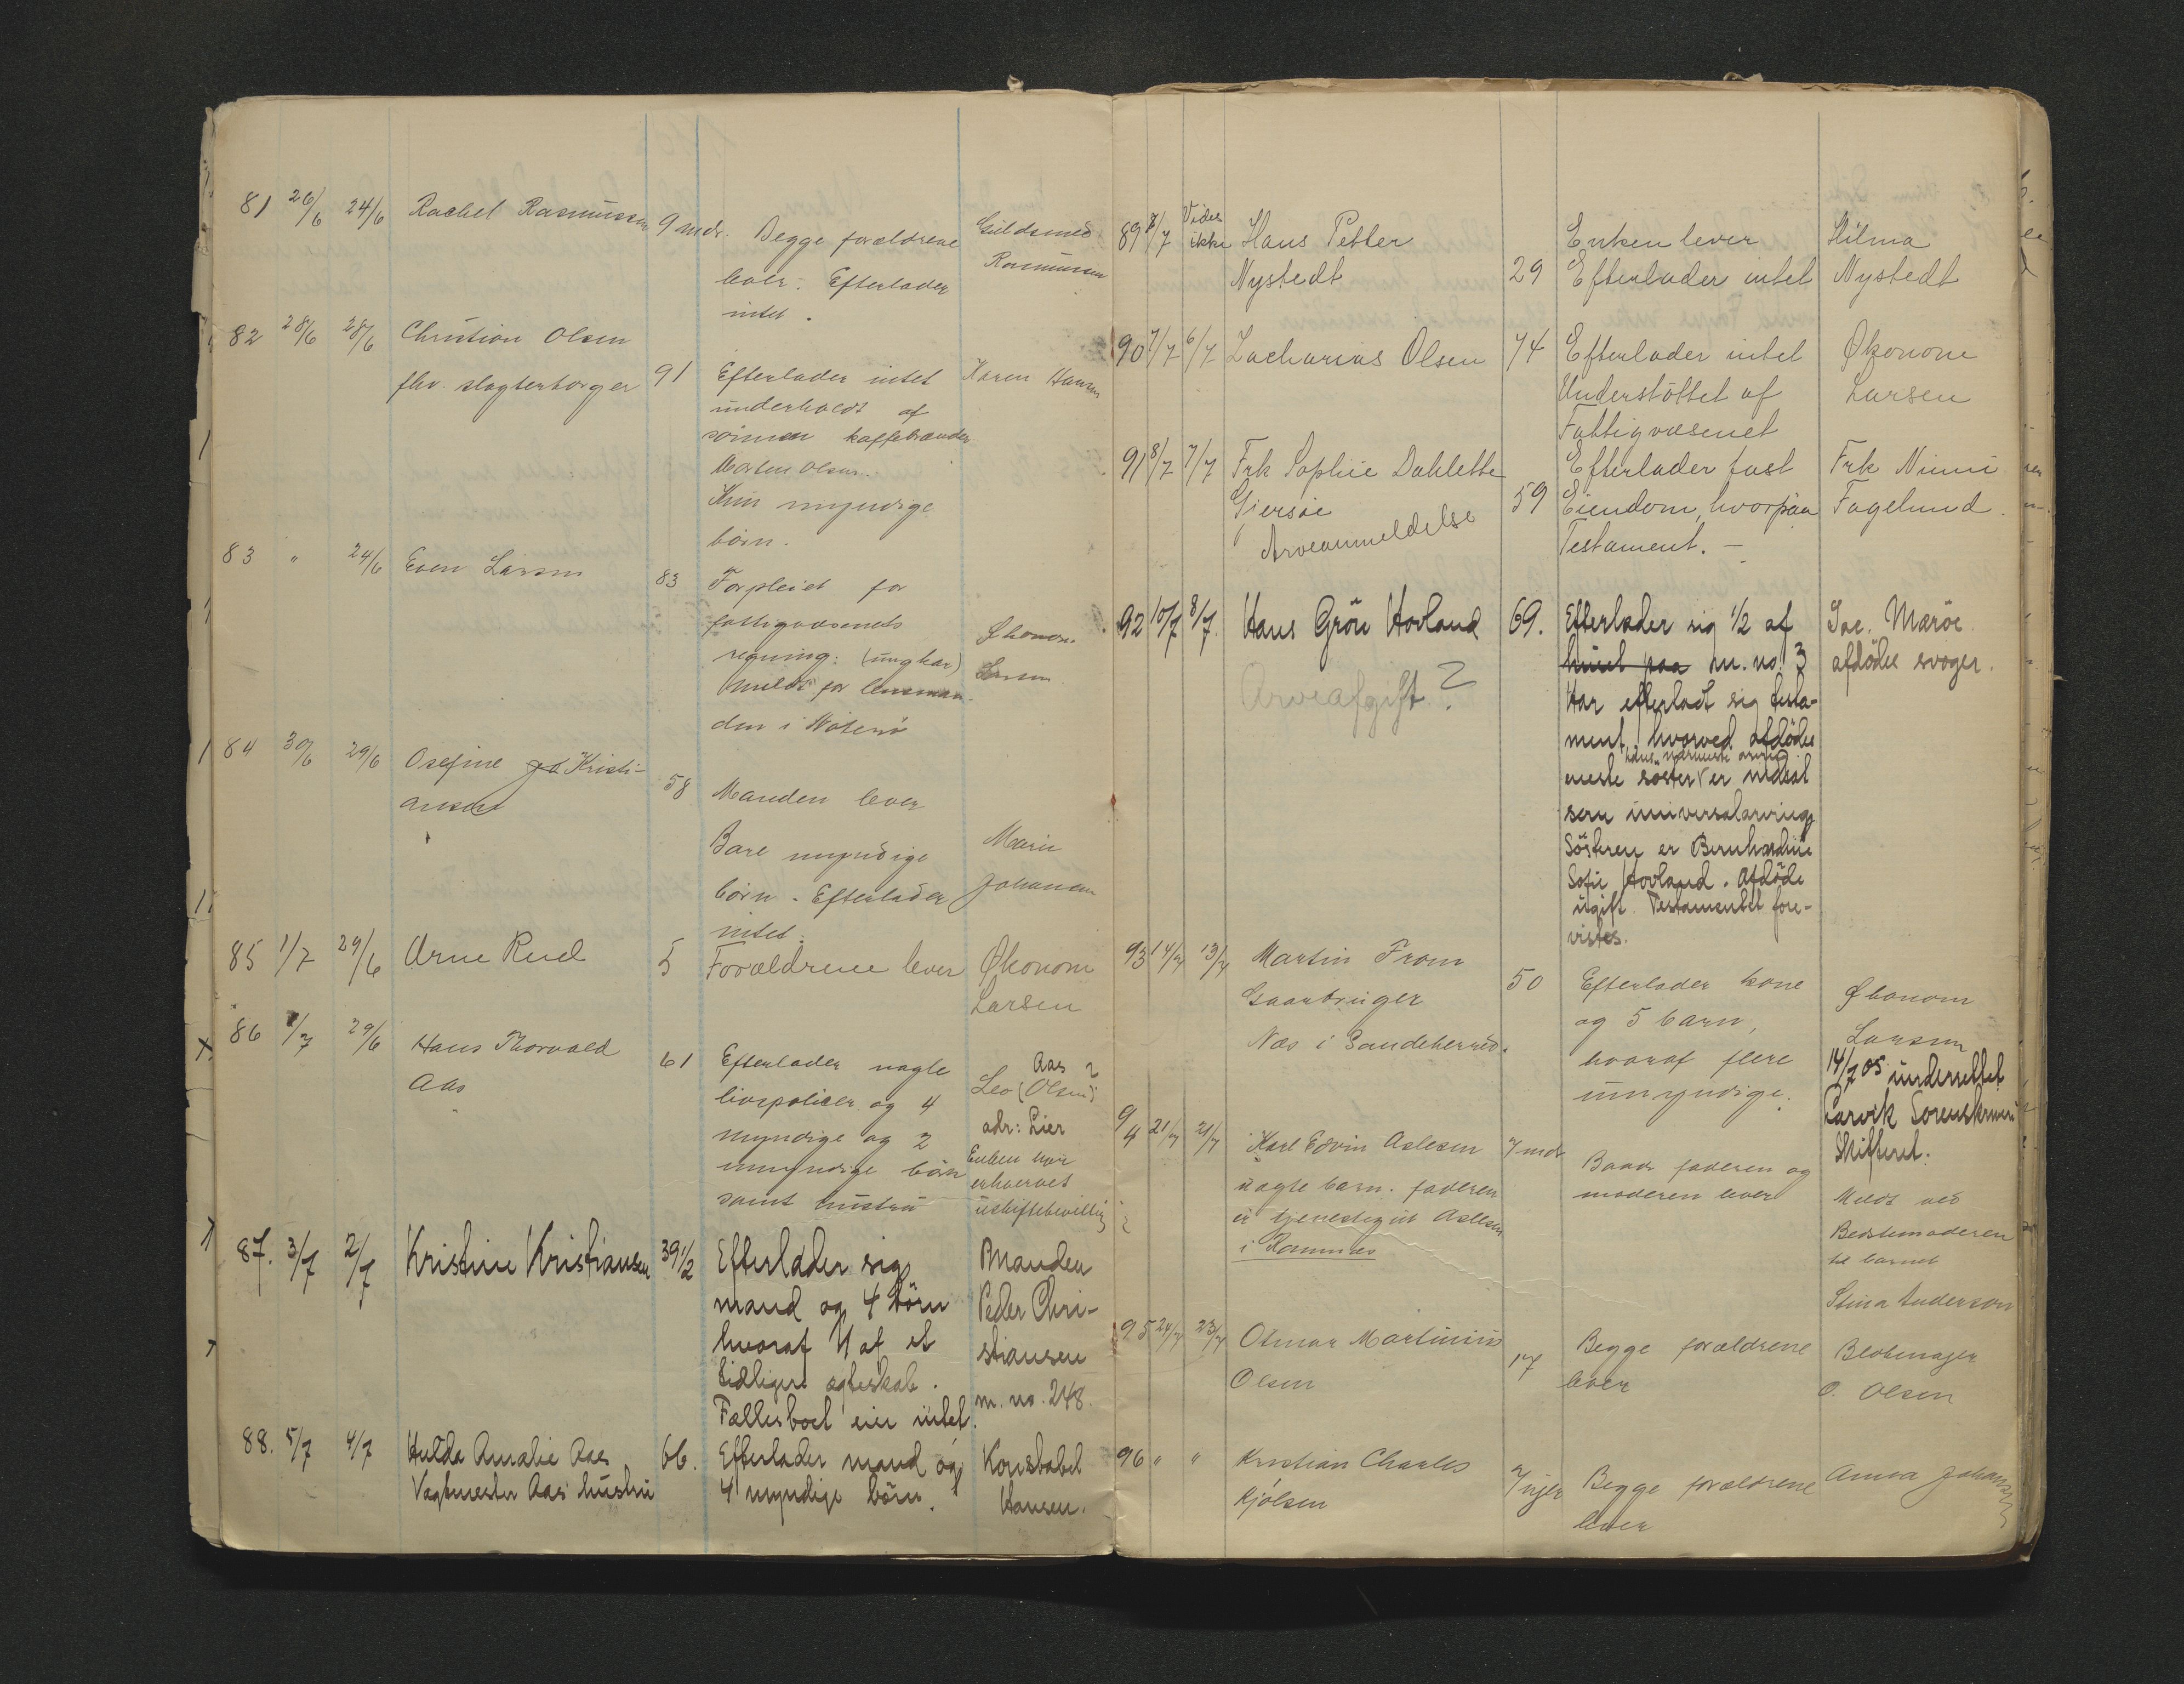 81 26/6 24/6 Rachel Rasmussen 9 mdr. Begge forældrene Guldsmed
lever. Efterlader Rasmussen
intet.
82 28/6 28/6 Christian Olsen
fhv. slagterborger 91 Efterlader intet Karen Hansen
underholdt af
sønnen kaffebrænder
Morten Olsen.
Kun myndige
børn.
83 " 24/6 Even Larsen 83 Forpleiet for
fattigvæsenets Økonom
regning: (ungkar) Larsen
Meldt for lensman-
den i
84 30/6 29/6 Osefine Kristi-
ansen 58 Manden lever
Bare myndige Marie
børn. Efterlader Johansen
intet.
85 1/7 29/6 Arne Rud 5 Forældrene lever Økonom
Larsen
86 1/7 29/6 Hans Thorvald 61 Efterlader nogle Aas ?
Aas livspolicer og 4 Leo (Olsen)
myndige og 2 adr: Lier
umyndige børn Enken har
samt hustru erhvervet
uskiftebevilling
87. 3/7 2/7 Kristine Kristiansen 39 1/2 Efterlader sig Manden
mand og 4 børn Peder Chri-
hvoraf 4 af et stiansen
tidligere ægteskab. m. no. 248.
Fællesboet eier intet.
88. 5/7 4/7 Hulda Amalie Aas 66. Efterlader mand og Konstabel
Vagtmester Aas' hustru 4 myndige børn. Hansen.
89 8/7 Vides
ikke Hans Petter Enken lever Hilma
Nystedt 29 Efterlader intet Nystedt
90 7/7 6/7 Zacharias Olsen 74 Efterlader intet Økonom
Understöttet af Larsen
Fattigvæsenet
91 8/7 7/7 Frk Sophie Dahlette Efterlader fast Frk Nimi
Giersøe 59 Eiendom, hvorpaa Fagelund.
Arveanmeldelse Testament. —
92 10/7 8/7. Hans Grön Hovland 69. Efterlader sig 1/2 af Jac. Maröe
Arveafgift? m. no. 3 afdödes svoger.
Har efterladt sig testa-
ment hvorved afdödes
hans nærmeste arving
neste söster er indsat
som universalarving
Sösteren er Bernhardine
Sofie Hovland. Afdöde
ugift. Testamentet fore-
vistes.
93 14/7 13/7 Martin From 50 Efterlader kone Økonom
Gaardbruger og 5 barn, Larsen
Næs i Sandeherred. hvoraf flere 14/7 05 underrettet
umyndige. Larvik Sorenskriveri
Skifteret.
94 21/7 21/7 Karl Edvin Aslesen 7 mdr Baade faderen og Meldt ved
uægte barn. faderen moderen lever Bedstemoderen
er tjenestegut Aslesen til barnet
i Ramnes Stina Anderson
95 24/7 23/7 Otmar Martinius 17 Begge forældrene Blokmager
Olsen lever O. Olsen
96 " " Kristian Charles 7 uger Begge forældrene Anna Johansen
Kjølsen lever